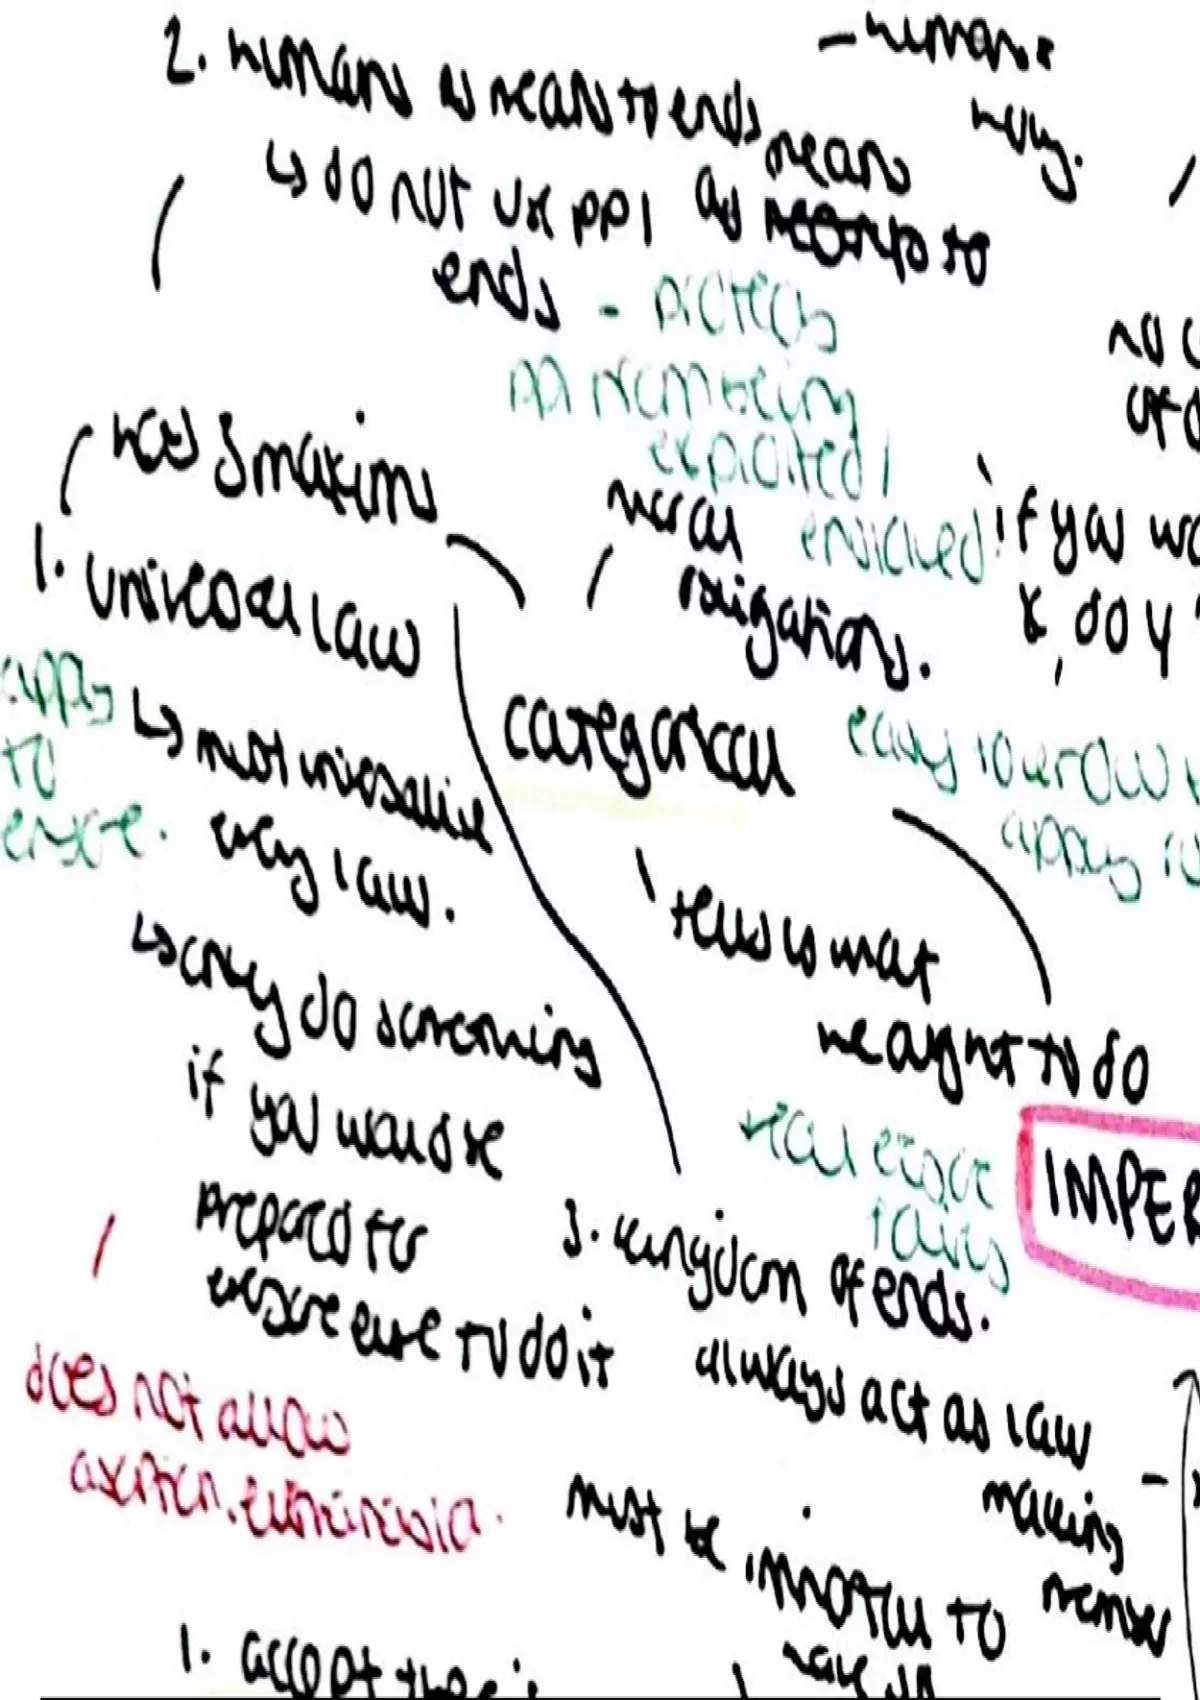 2. humans as means to ends
↳ do not use ppl as means to
ends - protects
ppl from being
exploited /
enslaved!
has 3 maxims
1. universal law
apply
to
↳ must universalise
every law.
↳ only do something
if you would be
prepared for
everyone else to do it
does not allow
abortion, euthanasia.
moral
obligations.
categorical
tells us what
we ought to do
if you wa
x, do y
easy to
apply to
IMPER
3. kingdom of ends.
always act as law
making
member
must be
to
have
1. accept